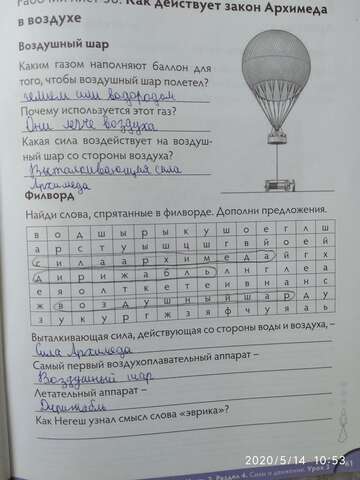 Как действует закон Архимеда
в воздухе
Воздушный шар
Каким газом наполняют баллон для
того, чтобы воздушный шар полетел?
гелием или водородом
Почему используется этот газ?
Они легче воздуха
Какая сила воздействует на воздуш-
ный шар со стороны воздуха?
Выталкивающая сила
Архимеда
Филворд
Найди слова, спрятанные в филворде. Дополни предложения.
в о д ш ы р ы к у ш о е г л ш
а р с т у ы ш ц ш г в й о е й
с и л а а р х и м е д а й г х
д и р и ж а б л ь л н г л е а
е я о л т к е т е и в н а н с
ж в о з д у ш н ы й ш а р д у
з у к у р г ж з я ф ч у я ь
Выталкивающая сила, действующая со стороны воды и воздуха, –
Сила Архимеда
Самый первый воздухоплавательный аппарат –
Воздушный шар
Летательный аппарат –
Дирижабль
Как Негеш узнал смысл слова "эврика"?
2020/5/14 10:53
Раздел 4. Силы и движение. Урок
61